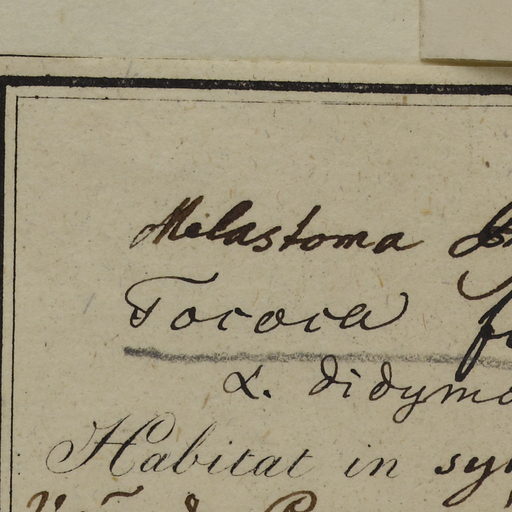 Melastoma
Tococa
α. didymo
Habitat in